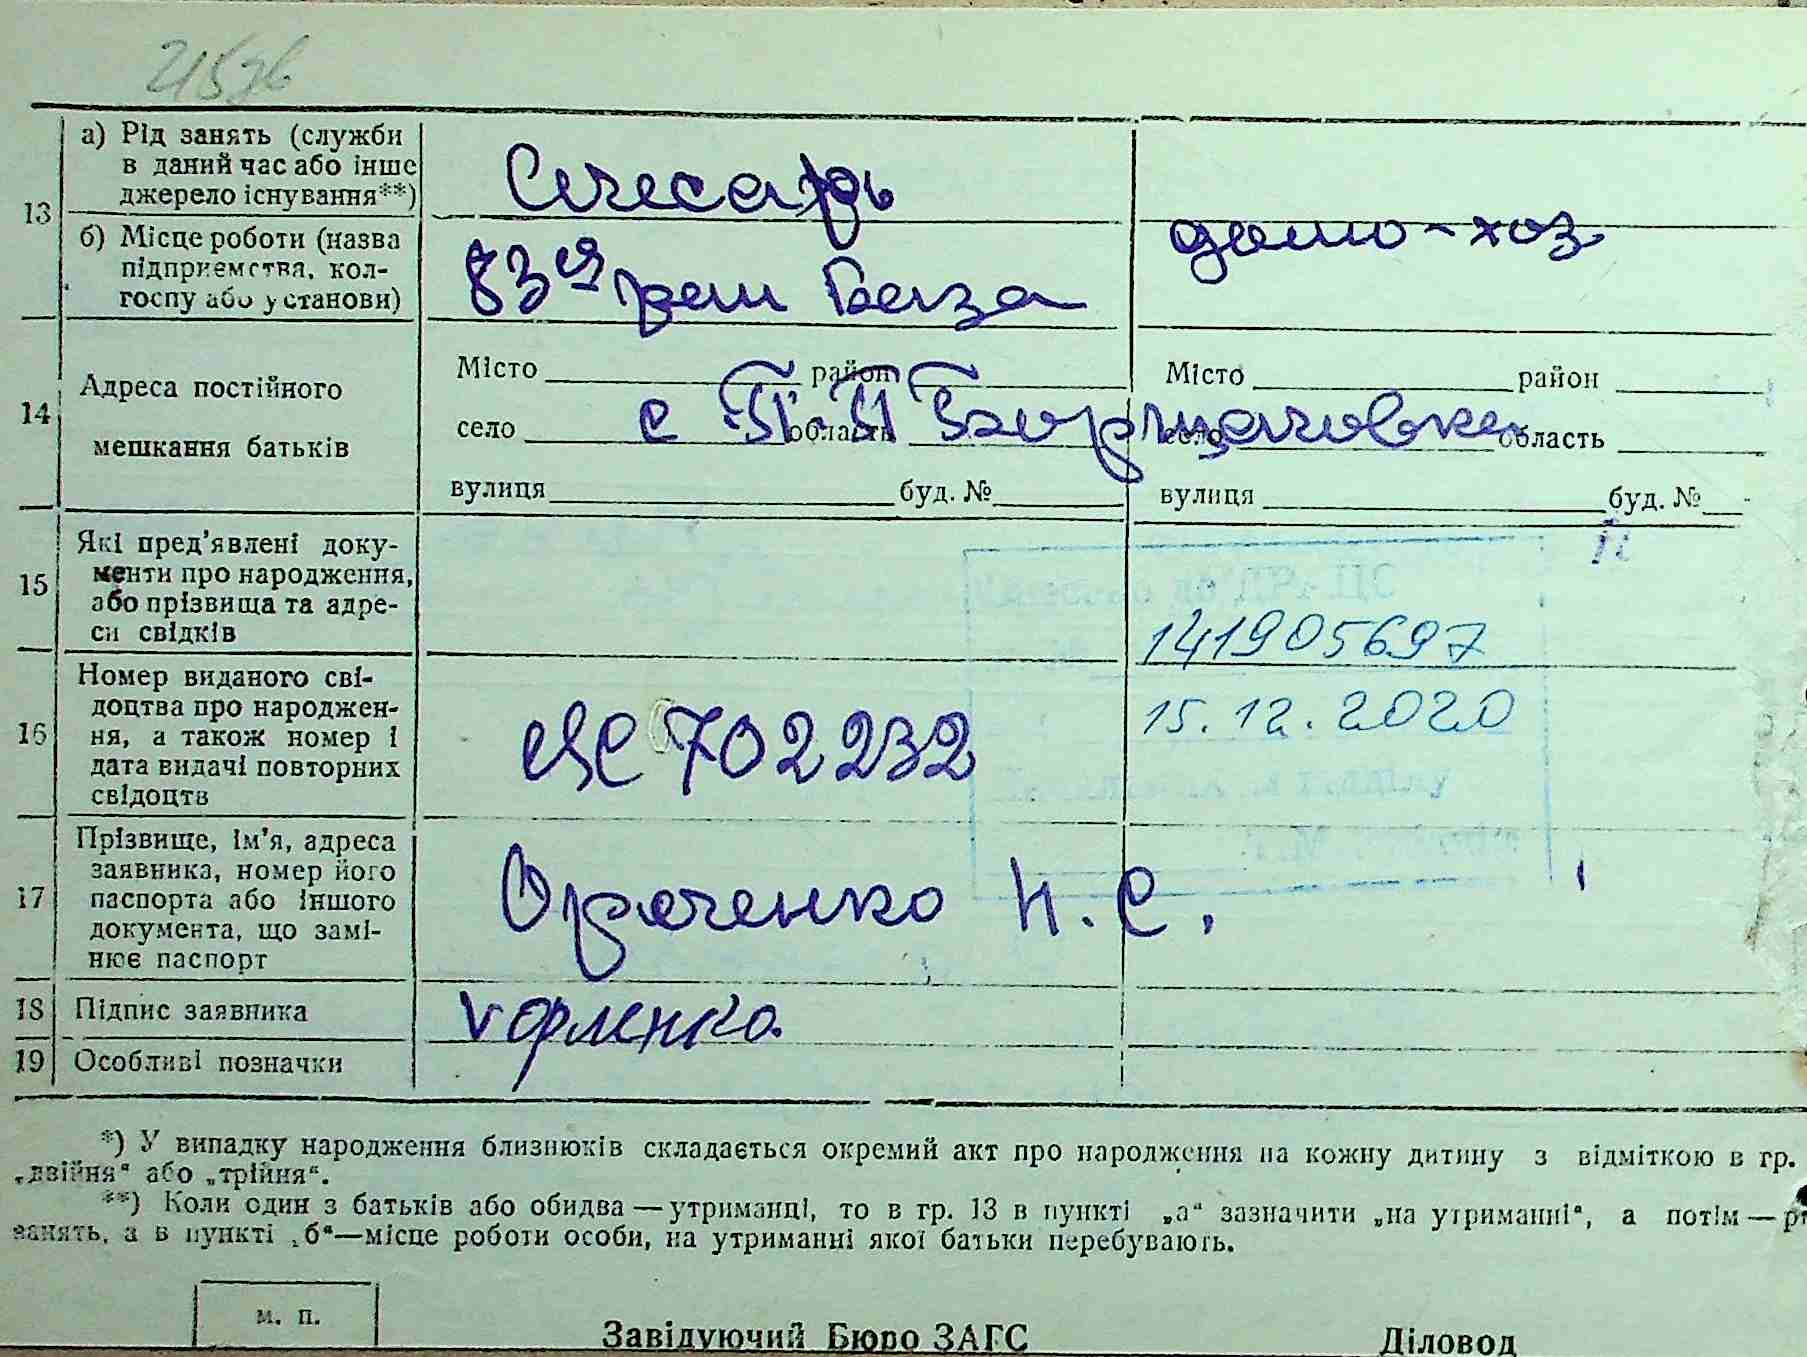 13
а) Рід занять (служби
в даний час або інше
джерело існування**)
Слесарь
б) Місце роботи (назва
підприємства, кол-
госпу або установи)
83ая рем База
домо-хоз
14
Адреса постійного
мешкання батьків
Місто район
Місто район
с П.П Борщаговка
село область
село область
вулиця буд. №
вулиця буд. №
15
Які пред’явлені доку-
менти про народження,
або прізвища та адре-
си свідків
141905697
16
Номер виданого сві-
доцтва про народжен-
ня, а також номер і
дата видачі повторних
свідоцтв
702232
15.12.2020
17
Прізвище, ім’я, адреса
заявника, номер його
паспорта або іншого
документа, що замі-
нює паспорт
Н. С.
18 Підпис заявника
19 Особливі позначки
*) У випадку народження близнюків складається окремий акт про народження на кожну дитину з відміткою в гр.
„двійня“ або „трійня“.
**) Коли один з батьків або обидва—утриманці, то в гр. 13 в пункті „а“ зазначити „на утриманні“, а потім—рі
занять, а в пункті „б“—місце роботи особи, на утриманні якої батьки перебувають.
м. п.
Завідуючий Бюро ЗАГС
Діловод